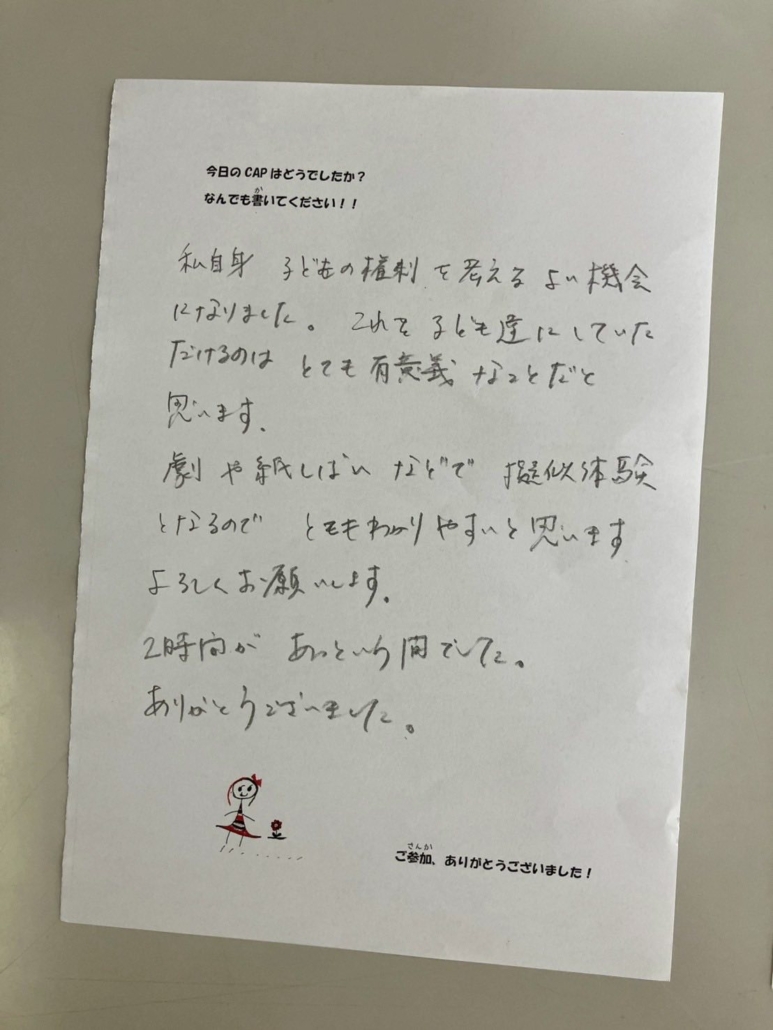 今日のCAPはどうでしたか?
なんでも書いてください!!
私自身 子どもの権利を考えるよい機会
になりました。これを子ども達にしていた
だけるのは とても有意義なことだと
思います。
劇や紙しばいなどで 擬似体験
となるので とてもわかりやすいと思います
よろしくお願いします。
2時間が あっという間でした。
ありがとうございました。
ご参加、ありがとうございました!